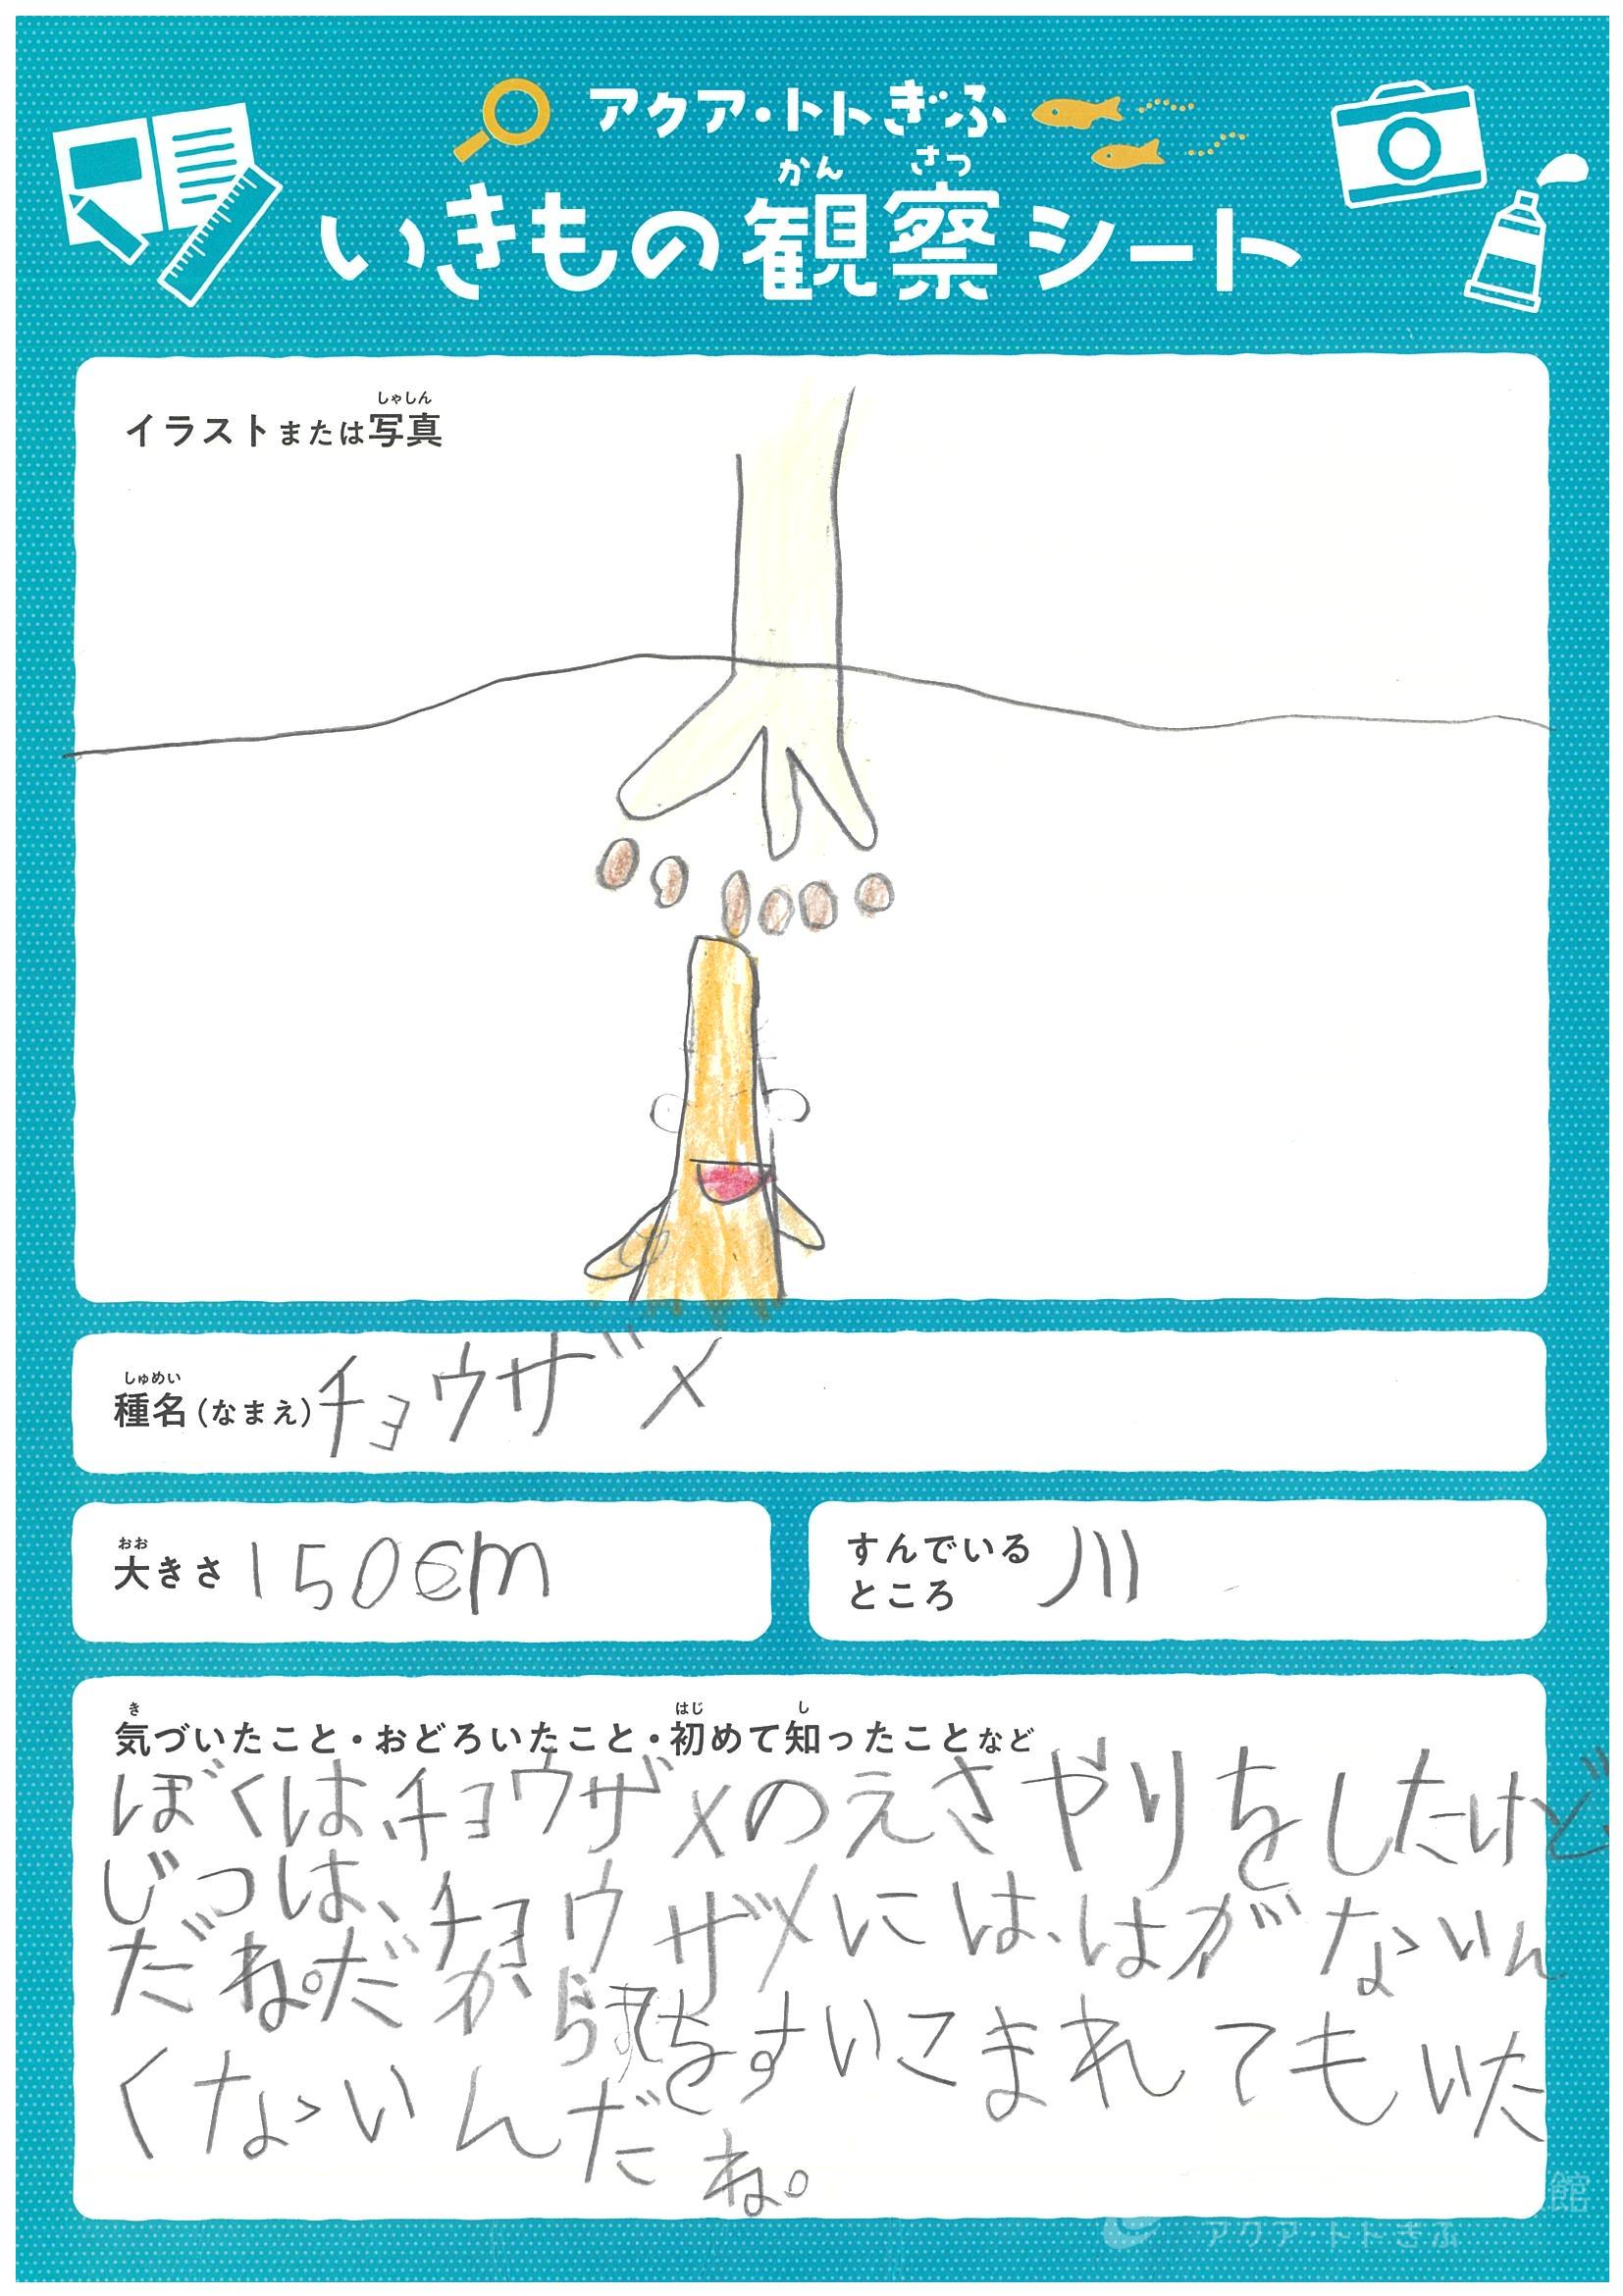 アクア・トトぎふ
かん さつ
いきもの観察シート
しゃしん
イラストまたは写真
しゅめい
種名(なまえ)チョウザメ
おお
大きさ 150cm
すんでいる
ところ 川
き はじ し
気づいたこと・おどろいたこと・初めて知ったことなど
ぼくは、チョウザメのえさやりをしたけど、
じつは、チョウザメには、はがないん
だね。だから、をすいこまれてもいた
くないんだね。
館
アクア・トトぎふ